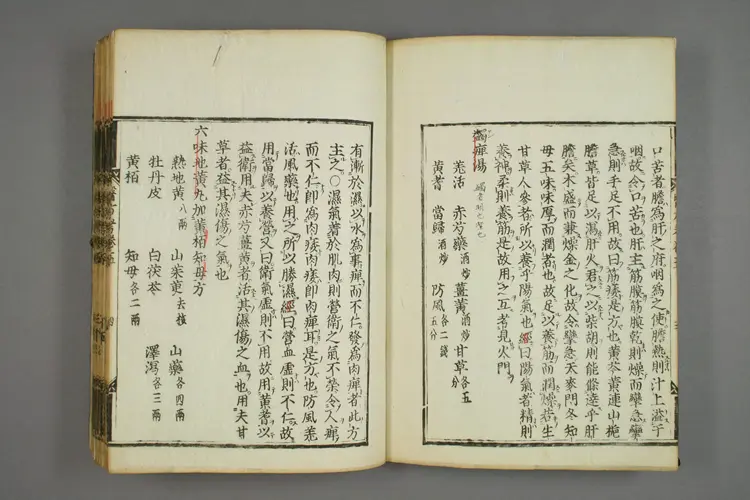 口苦者膽為肝之府咽為之使膽熱則汁上溢于
咽故令口苦也肝主筋膜筋膜乾則燥而攣急攣
急則手足不用故曰筋痿是方也黃芩黃連山梔
膽草皆足以瀉肝火君之以柴胡則能條達乎肝
膽矣木盛而兼燥金之化故令攣急天麥門冬知
母五味味厚而潤者也故足以養筋而潤燥若生
甘草人參者所以養乎陽氣也經曰陽氣者精則
養神柔則養筋是故用之互考見火門
蠲痺湯
羌活 赤芍藥酒炒 薑黃酒炒 甘草各五分
黃耆 當歸酒炒 防風各二錢五分
有漸於濕以水為事痺而不仁發為肉痿者此方
主之○濕氣著於肌肉則營衛之氣不榮令人痺
而不仁即為肉痿肉痿即肉痺耳是方也防風羌
活風藥也用之所以勝濕經曰營血虛則不仁故
用當歸以養營又曰衛氣虛則不用故用黃耆以
益衛用夫赤芍薑黃者活其濕傷之血也用夫甘
草者益其濕傷之氣也
六味地黃丸加黃栢知母方
熟地黃八兩 山茱萸去核 山藥各四兩
牡丹皮 白茯苓 澤瀉各三兩
黃栢 知母各二兩